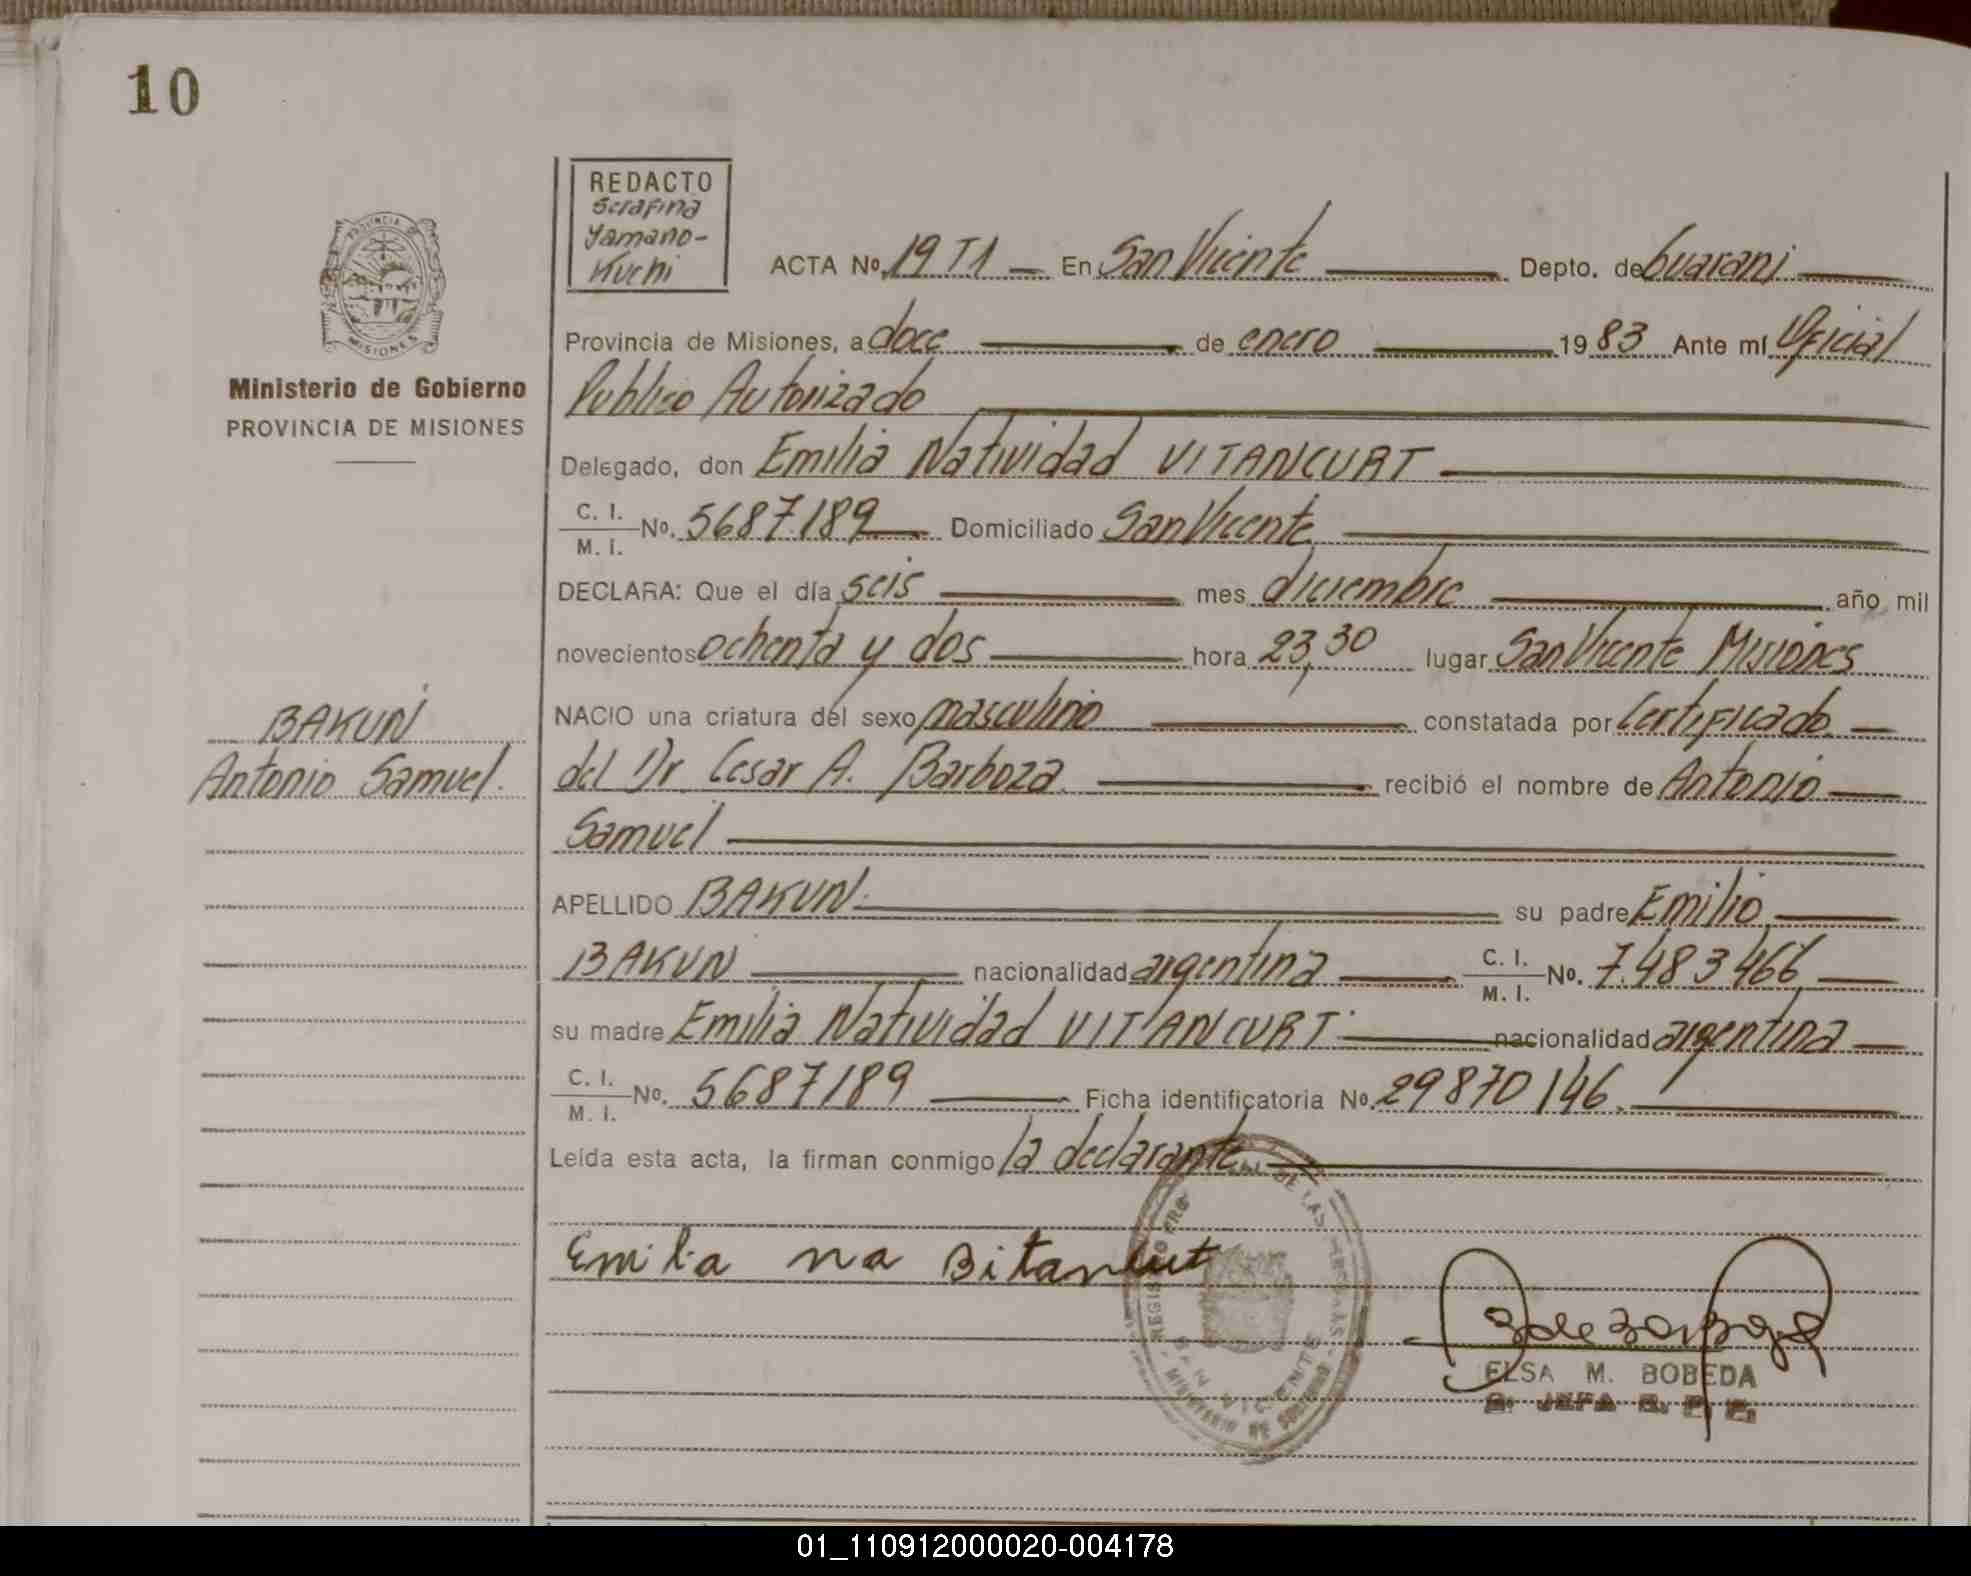 10
REDACTO
Serafina
Yamano-
Kuchi
PROVINCIA DE
MISIONES
Ministerio de Gobierno
PROVINCIA DE MISIONES
BAKUN
Antonio Samuel.
ACTA No. 19 T1 — En San Vicente — Depto. de Guarani —
Provincia de Misiones, a doce — de enero — 1983 Ante mí Oficial
Publico Autorizado —
Delegado, don Emilia Natividad VITANCURT —
C. I. / M. I. No. 5687.189 — Domiciliado San Vicente —
DECLARA: Que el día seis — mes diciembre — año mil
novecientos ochenta y dos — hora 23,30 lugar San Vicente Misiones
NACIO una criatura del sexo masculino — constatada por Certificado —
del Dr. Cesar A. Barboza — recibió el nombre de Antonio —
Samuel —
APELLIDO BAKUN. — su padre Emilio —
BAKUN — nacionalidad argentina — C. I. / M. I. No. 7.483466 —
su madre Emilia Natividad VITANCURT. — nacionalidad argentina —
C. I. / M. I. No. 5687189 — Ficha identificatoria No. 29870146. —
Leída esta acta, la firman conmigo la declarante —
Emilia na Bitancut
REGISTRO PRO DE LAS PERSONAS
SAN VICENTE
MINISTERIO DE GOBIERNO
ELSA M. BOBEDA
JEFA R. P. P.
01_110912000020-004178